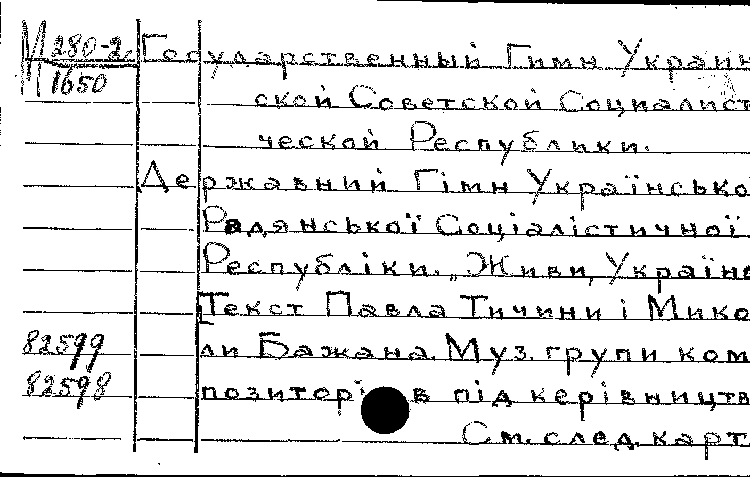 М 280-2 Государственный Гимн Украин
1650
ской Советской Социалист
ческой Республики.
Державний Гімн Українсько
Радянської Соціалістичної
Республіки. „Живи, Україно
Текст Павла Тичини і Мико
82599 ли Бажана. Муз. групи ком
82598 позиторів під керівництв
См. след. карт